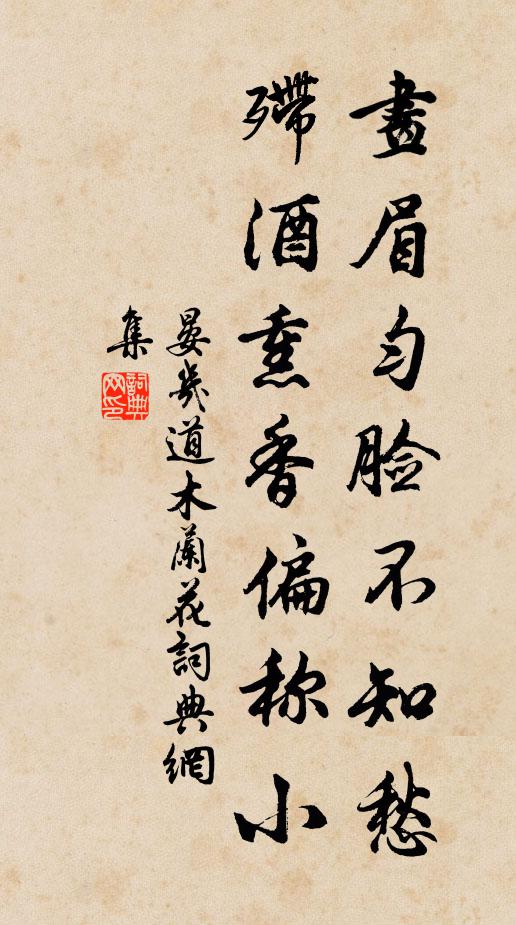 畫眉勻臉不知愁
殢酒熏香偏称小
晏幾道木蘭花詞典網
集
詞典
网印